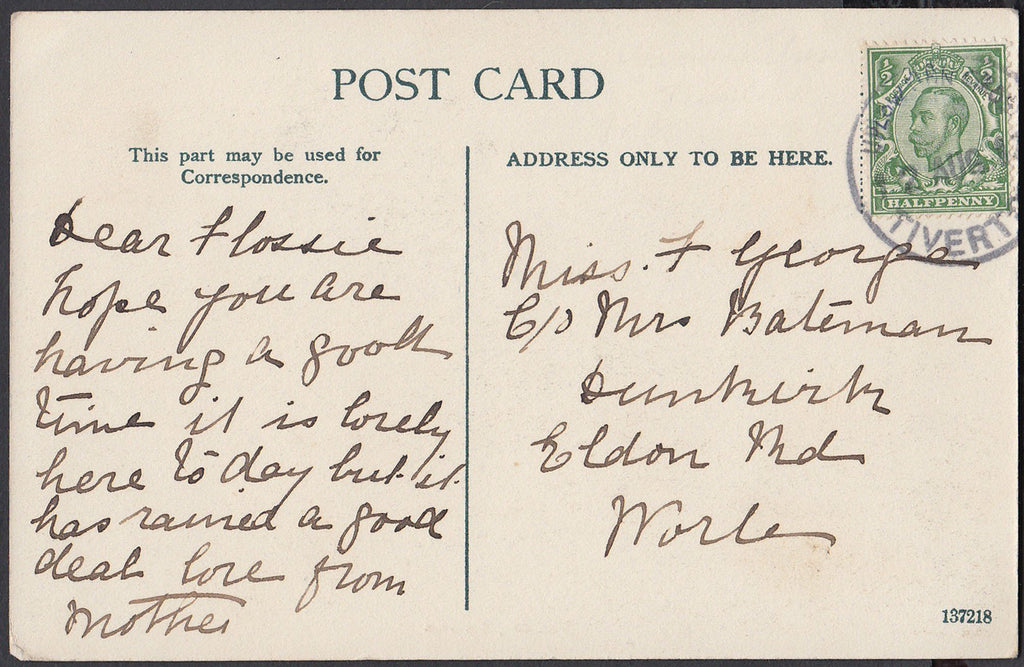 POST CARD
This part may be used for
Correspondence.
Dear Flossie
hope you are
having a good
time it is lovely
here to day but it
has rained a good
deal love from
Mother
ADDRESS ONLY TO BE HERE.
½ ½
HALFPENNY
AUG
TIVERT
Miss. F George
C/o Mrs Bateman
Dunkirk
Eldon Rd
Worle
137218